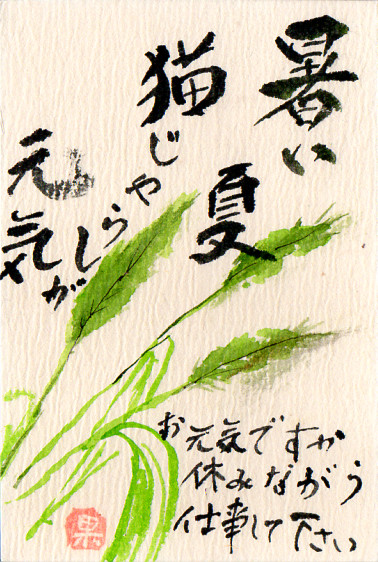 暑い
夏
猫じゃらしが
元気
お元気ですか
休みながら
仕事して下さい